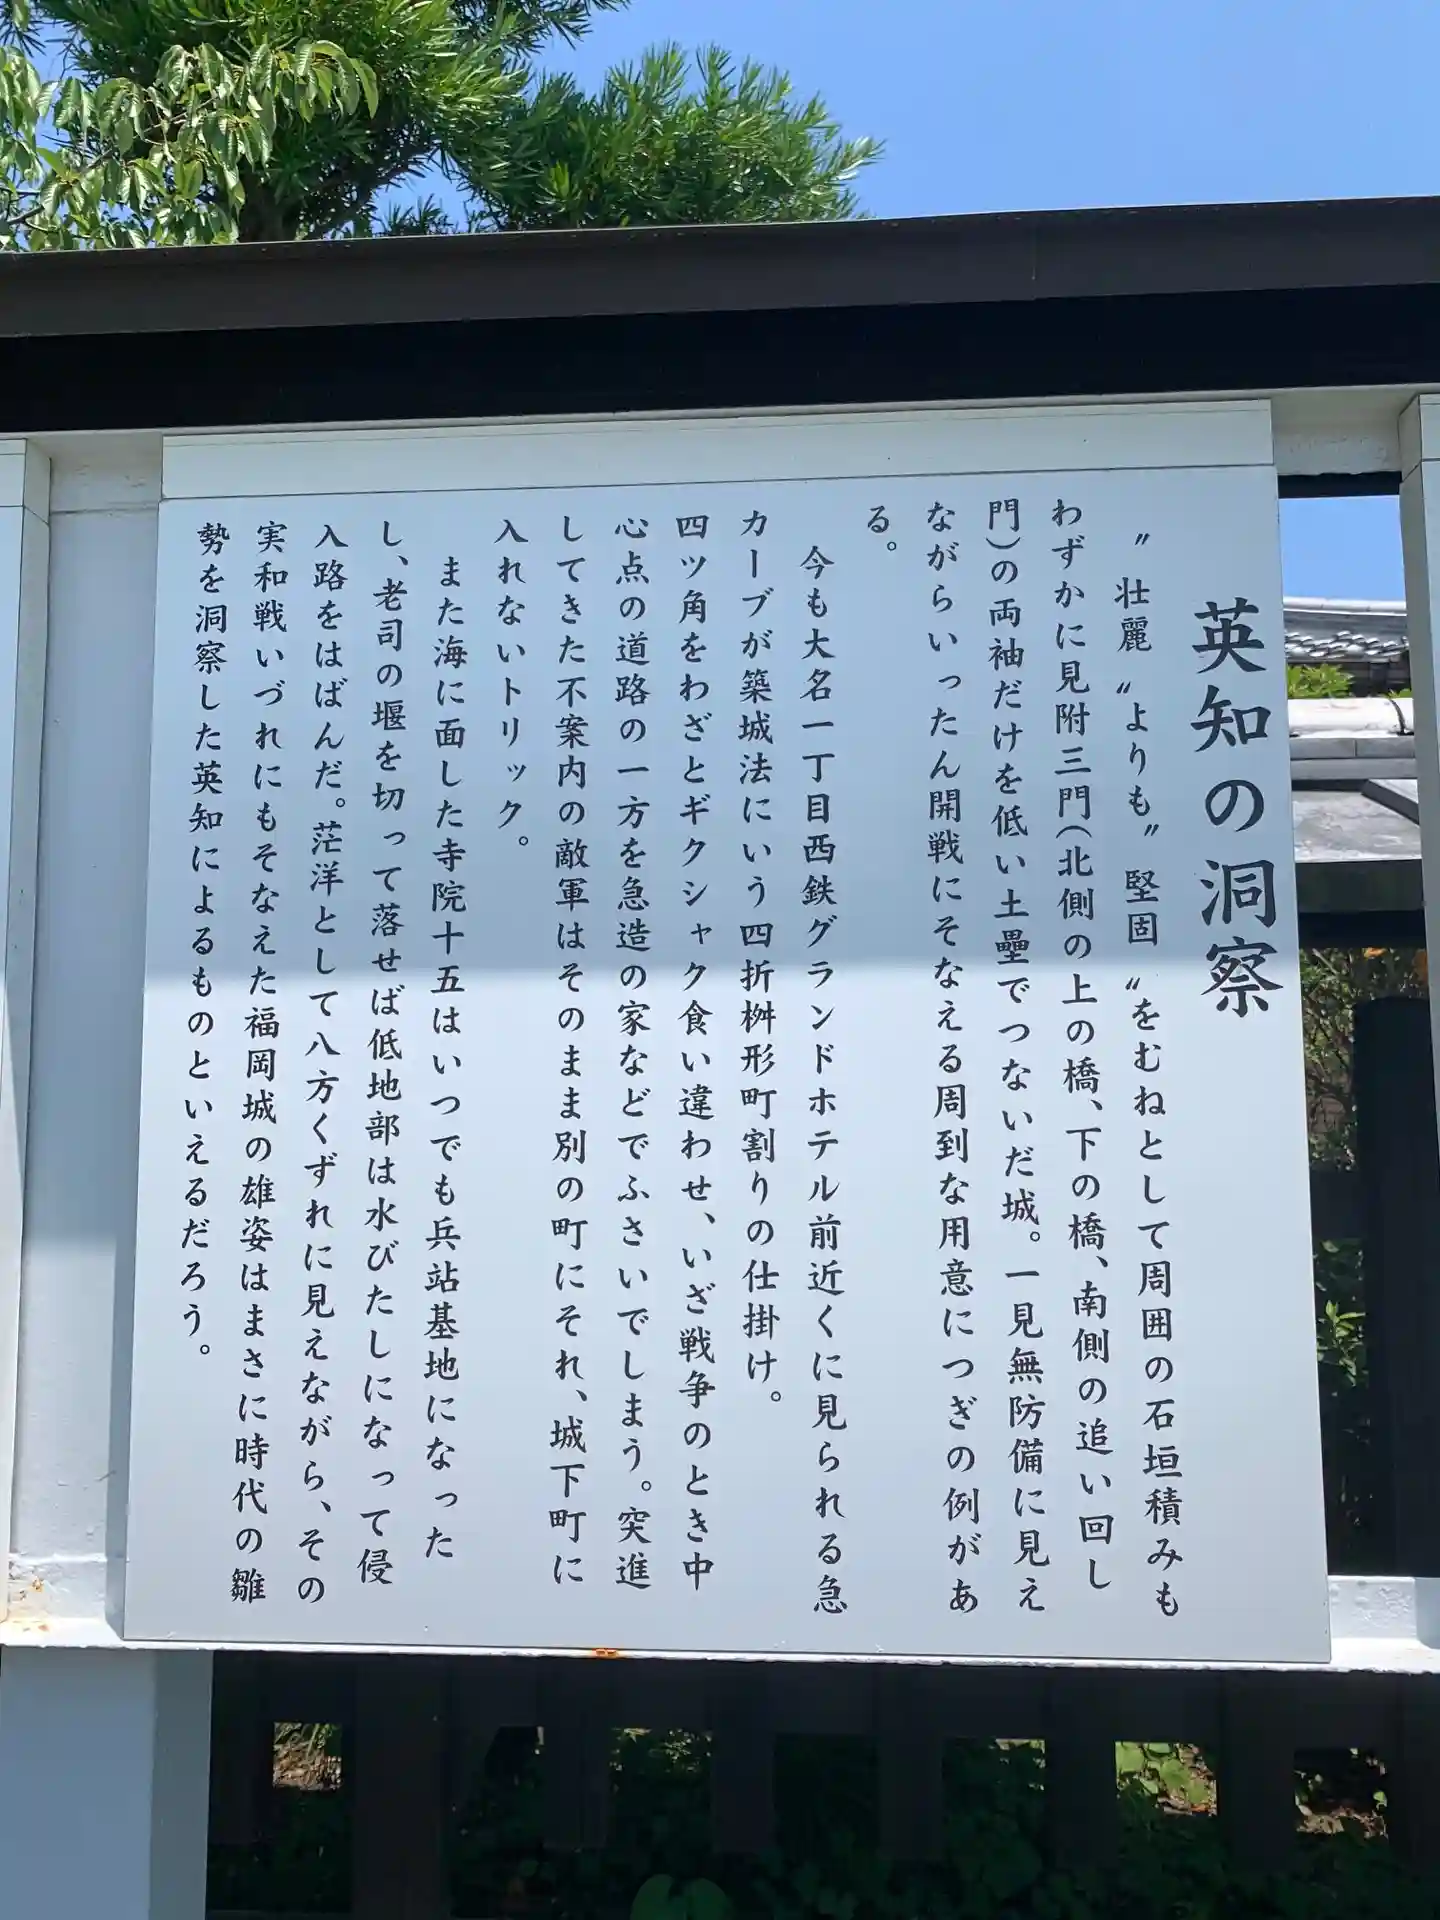 英知の洞察
〝壮麗〟よりも〝堅固〟をむねとして周囲の石垣積みも
わずかに見附三門(北側の上の橋、下の橋、南側の追い回し
門)の両袖だけを低い土壘でつないだ城。一見無防備に見え
ながらいったん開戦にそなえる周到な用意につぎの例があ
る。
今も大名一丁目西鉄グランドホテル前近くに見られる急
カーブが築城法にいう四折桝形町割りの仕掛け。
四ツ角をわざとギクシャク食い違わせ、いざ戦争のとき中
心点の道路の一方を急造の家などでふさいでしまう。突進
してきた不案内の敵軍はそのまま別の町にそれ、城下町に
入れないトリック。
また海に面した寺院十五はいつでも兵站基地になった
し、老司の堰を切って落せば低地部は水びたしになって侵
入路をはばんだ。茫洋として八方くずれに見えながら、その
実和戦いづれにもそなえた福岡城の雄姿はまさに時代の雛
勢を洞察した英知によるものといえるだろう。